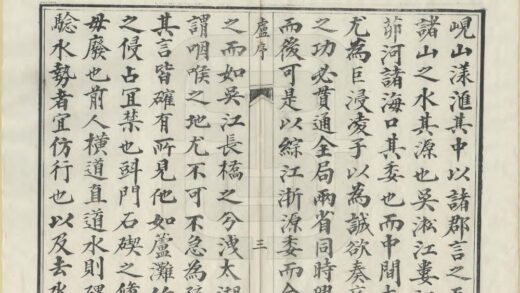 峴山漾滙其中以諸郡言之
諸山之水其源也吳淞江婁
茆河諸海口其委也而中間
尤為巨浸凌子以為誠欲奏
之功必貫通全局兩省同時
而後可是以綜江浙源委而
盧序
三
之而如吳江長橋之分洩太湖
謂咽喉之地尤不可不急為
其言皆確有所見他如蘆灘
之侵占冝禁也㪷門石碶之
毋廢也前人橫道直道水則
騐水勢者宜仿行也以及去水